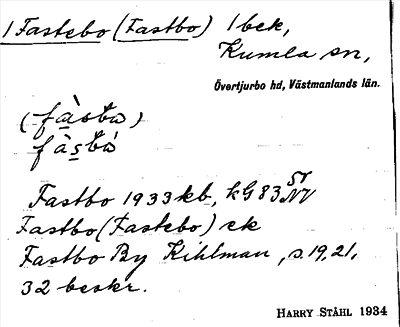 1 Fastebo (Fastbo) 1 bek,
Kumla sn,
Övertjurbo hd, Västmanlands län.
(fàsba)
fàsbà
Fastbo 1933 kb, kG 83 SV NV
Fastbo (Fastebo) ek
Fastbo By Kihlman, s. 19, 21,
32 beskr.
HARRY STÅHL 1934